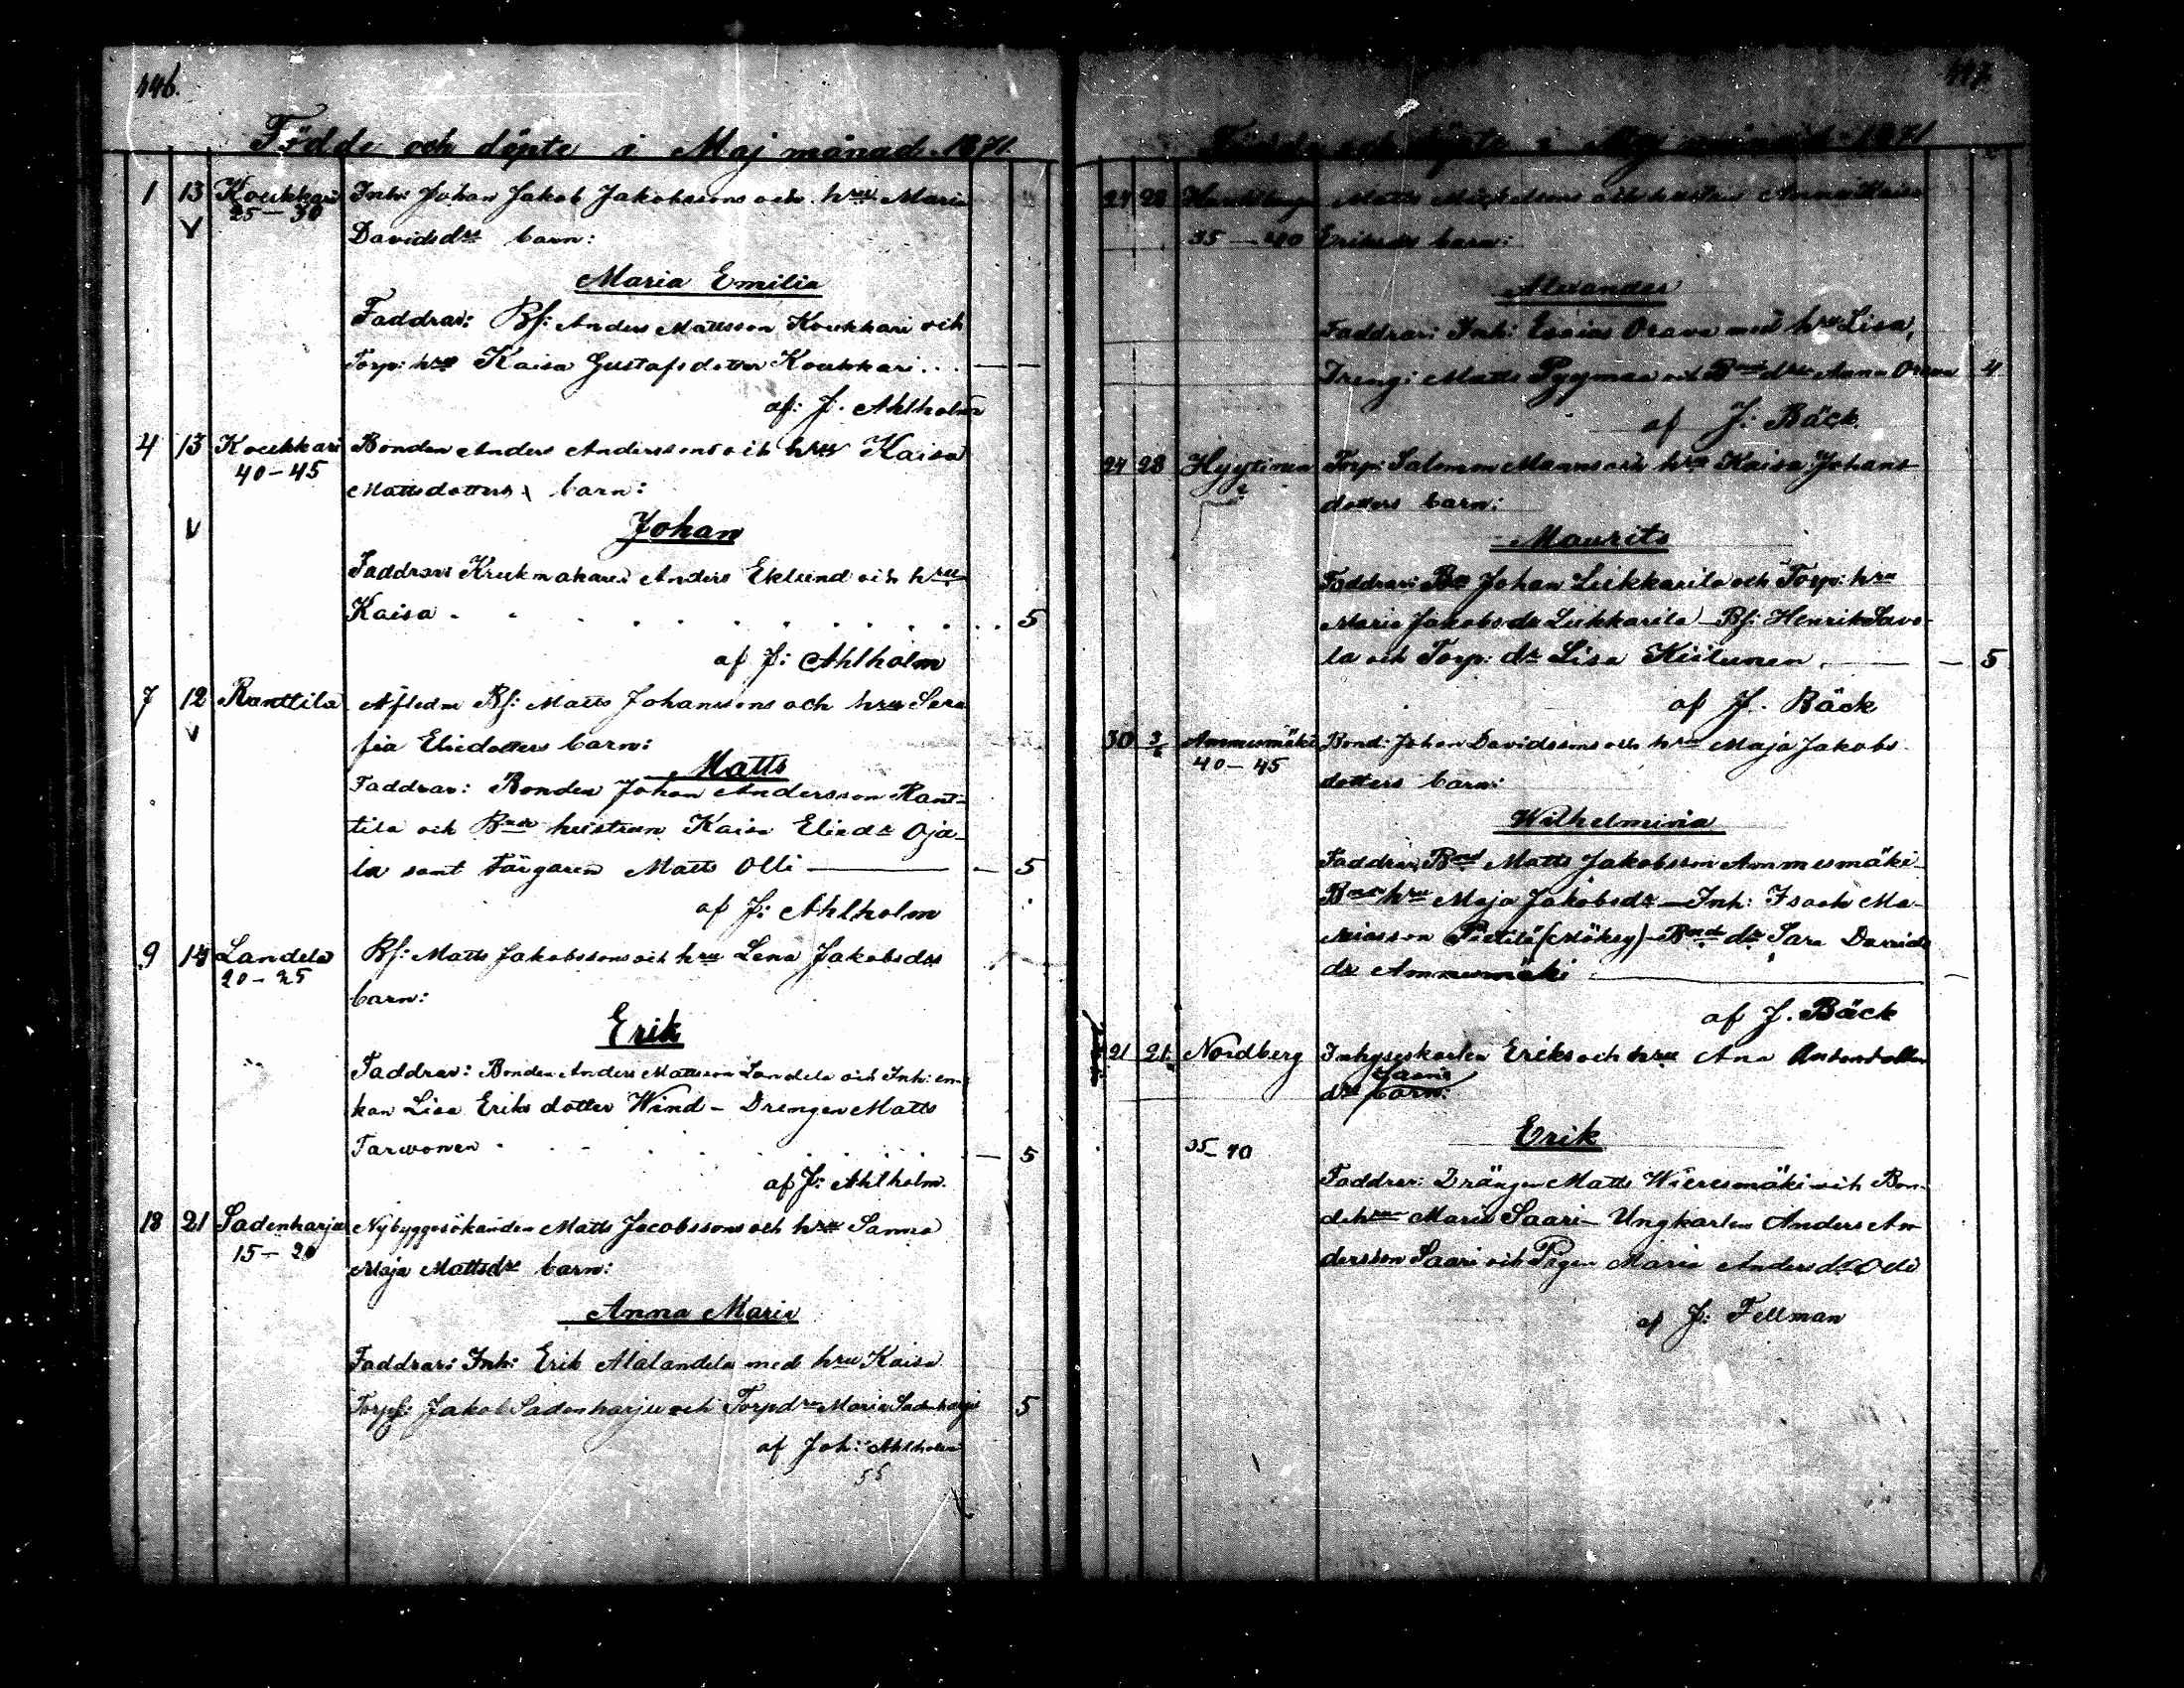 146.
Födde och döpte i Maj månad 1871.
1 13 Koukkari Inh: Johan Jakob Jakobssons och hru Maria
25–30
V Davidsdrs barn:
Maria Emilia
Faddrar: Bf: Anders Mattsson Koukkari och
Torp: hru Kaisa Gustafsdotter Koukkari . . .
af: J. Ahlholm
4 13 Koukkari Bonden Anders Anderssons och hrus Kaisa
40–45
Mattsdotters barn:
V Johan
Faddrar: Krukmakaren Anders Eklund och hru
Kaisa . . . . . . 5
af J: Ahlholm
7 12 Ranttila Afledne Bf: Matts Johanssons och hru Sera
V fia Eliedotters barn:
Matts
Faddrar: Bonden Johan Andersson Rant-
tila och Bnde hustrun Kaisa Eliedr Oja-
la samt färgaren Matts Olli — 5
af J: Ahlholm
9 14 Landela Bf: Matts Jakobssons och hru Lena Jakobsdrs
20–25
barn:
Erik
Faddrar: Bonden Anders Mattsson Landela och Inh: en-
kan Lisa Eriks dotter Wind – Drengen Matts
Tarvonen . . . . . — 5
af J: Ahlholm.
18 21 Sadenharju Nybyggesökanden Matts Jacobssons och hru Sanna
15–20
Maja Mattsdrs barn:
Anna Maria
Faddrar: Inh: Erik Alalandela med hru Kaisa
Torpf: Jakob Sadenharju och Torpdrn Maria Sadenharju 5
af Joh: Ahlholm
55
147.
Födde och döpte i Maj månad 1871
24 28 Matts Michelsons och hustrus Anna Kaisa
35–40 Eriksdrs barn:
Alexander
Faddrar: Inh: Esaias Orava med hru Lisa,
Dreng: Matts Pyymaa och Bnde drn Anna Orava 4
af J: Bäck.
24 28 Hyytinen Torp: Salomon Manns och hru Kaisa Johans
dotters barn:
Maurits
Faddrar: Bn Johan Liikkarila och Torp: hru
Maria Jakobsdr Liikkarila – Bf: Henrik Savo-
la och Torp: dr Lisa Kiilunen — 5
af J. Bäck
30 3/6 Ammesmäki Bond: Johan Davidssons och hru Maja Jakobs
40–45
dotters barn:
Wilhelmina
Faddrar: Bnd Matts Jakobsson Ammesmäki
Bnde hru Maja Jakobsdr – Inh: Isaak Ma-
Pietilä – Bnde dr Sara Davids
dr Ammesmäki
af J. Bäck
21 21 Nordberg Inhyseskarlen Eriks och hru Ana
Saari
drs barn:
Erik
35–40
Faddrar: Drängen Matts Wieresmäki och Bon-
dehru Maria Saari – Ungkarlen Anders An-
dersson Saari och Pigan Maria Andersdr Olli
af J: Fellman